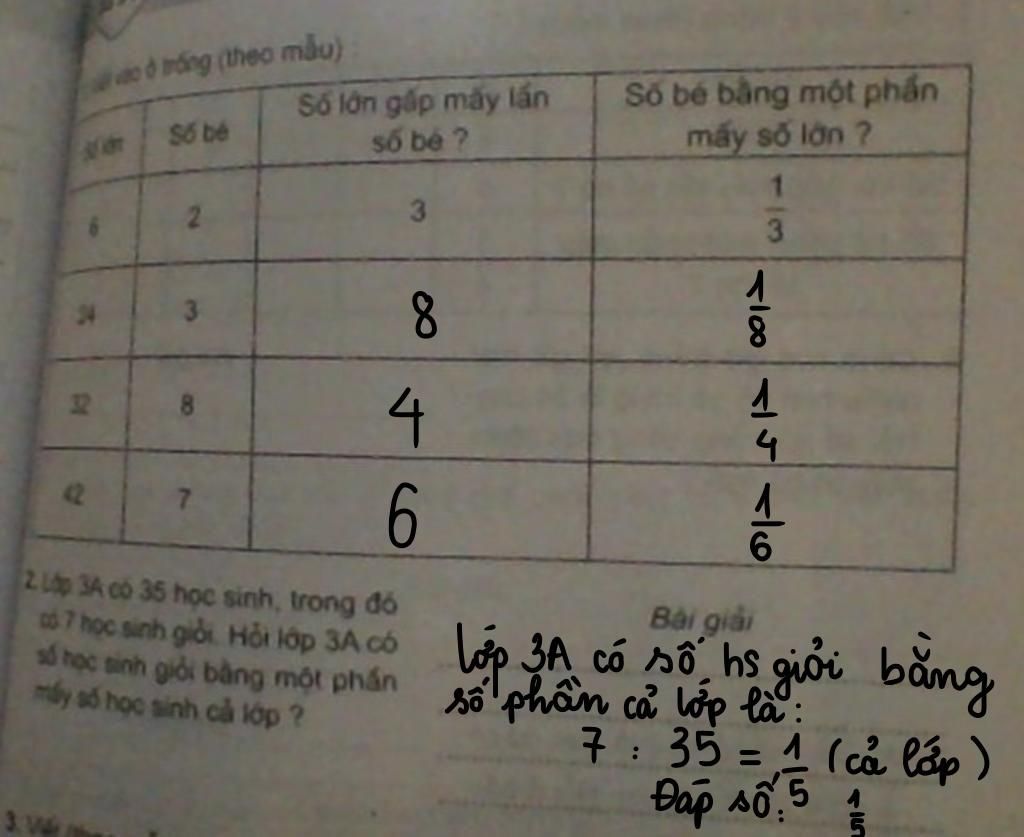 vào ô trống (theo mẫu) :
Số lớn Số bé Số lớn gấp mấy lần số bé ? Số bé bằng một phần mấy số lớn ?
6 2 3 1/3
24 3 8 1/8
32 8 4 1/4
42 7 6 1/6
2. Lớp 3A có 35 học sinh, trong đó
có 7 học sinh giỏi. Hỏi lớp 3A có
số học sinh giỏi bằng một phần
mấy số học sinh cả lớp ?
Bài giải
Lớp 3A có số hs giỏi bằng
số phần cả lớp là:
7 : 35 = 1/5 (cả lớp)
Đáp số: 1/5
3. Viết